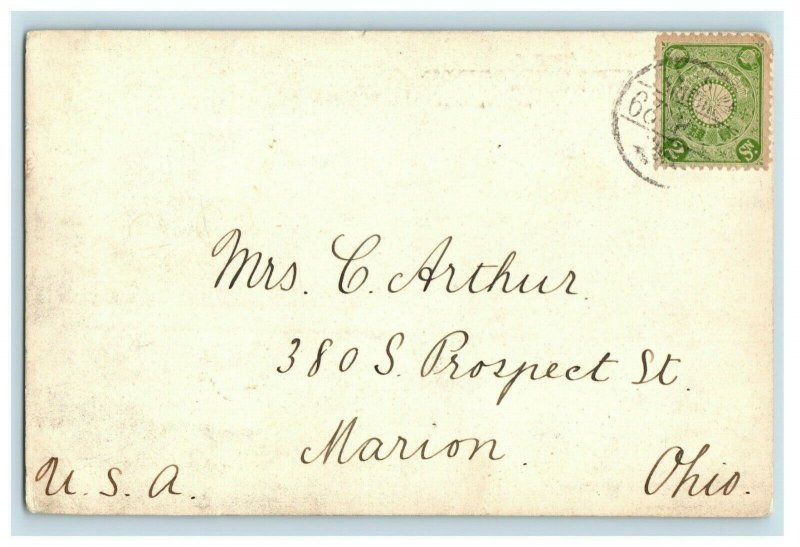 Mrs. C. Arthur.
380 S. Prospect St.
Marion.
Ohio.
U. S. A.